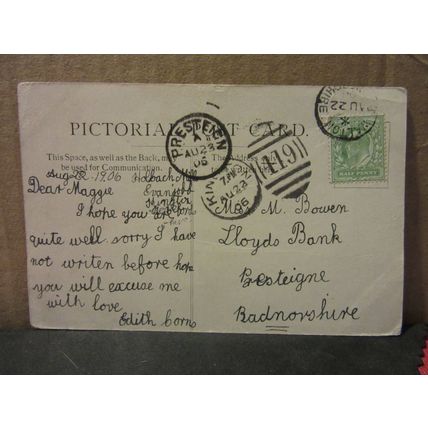 PICTORIAL POST CARD.
This Space, as well as the Back, may
be used for Communication.
The Address
Aug 22 1906
Dear Maggie
I hope you are
quite well sorry I have
not writen before hope
you will excuse me
with love
Edith Corns
M. Bowen
Lloyds Bank
Presteigne
Radnorshire
PRESTEIGN
A
AU 23
06
KIN
AU 22
06
419
AU 22
HALF PENNY